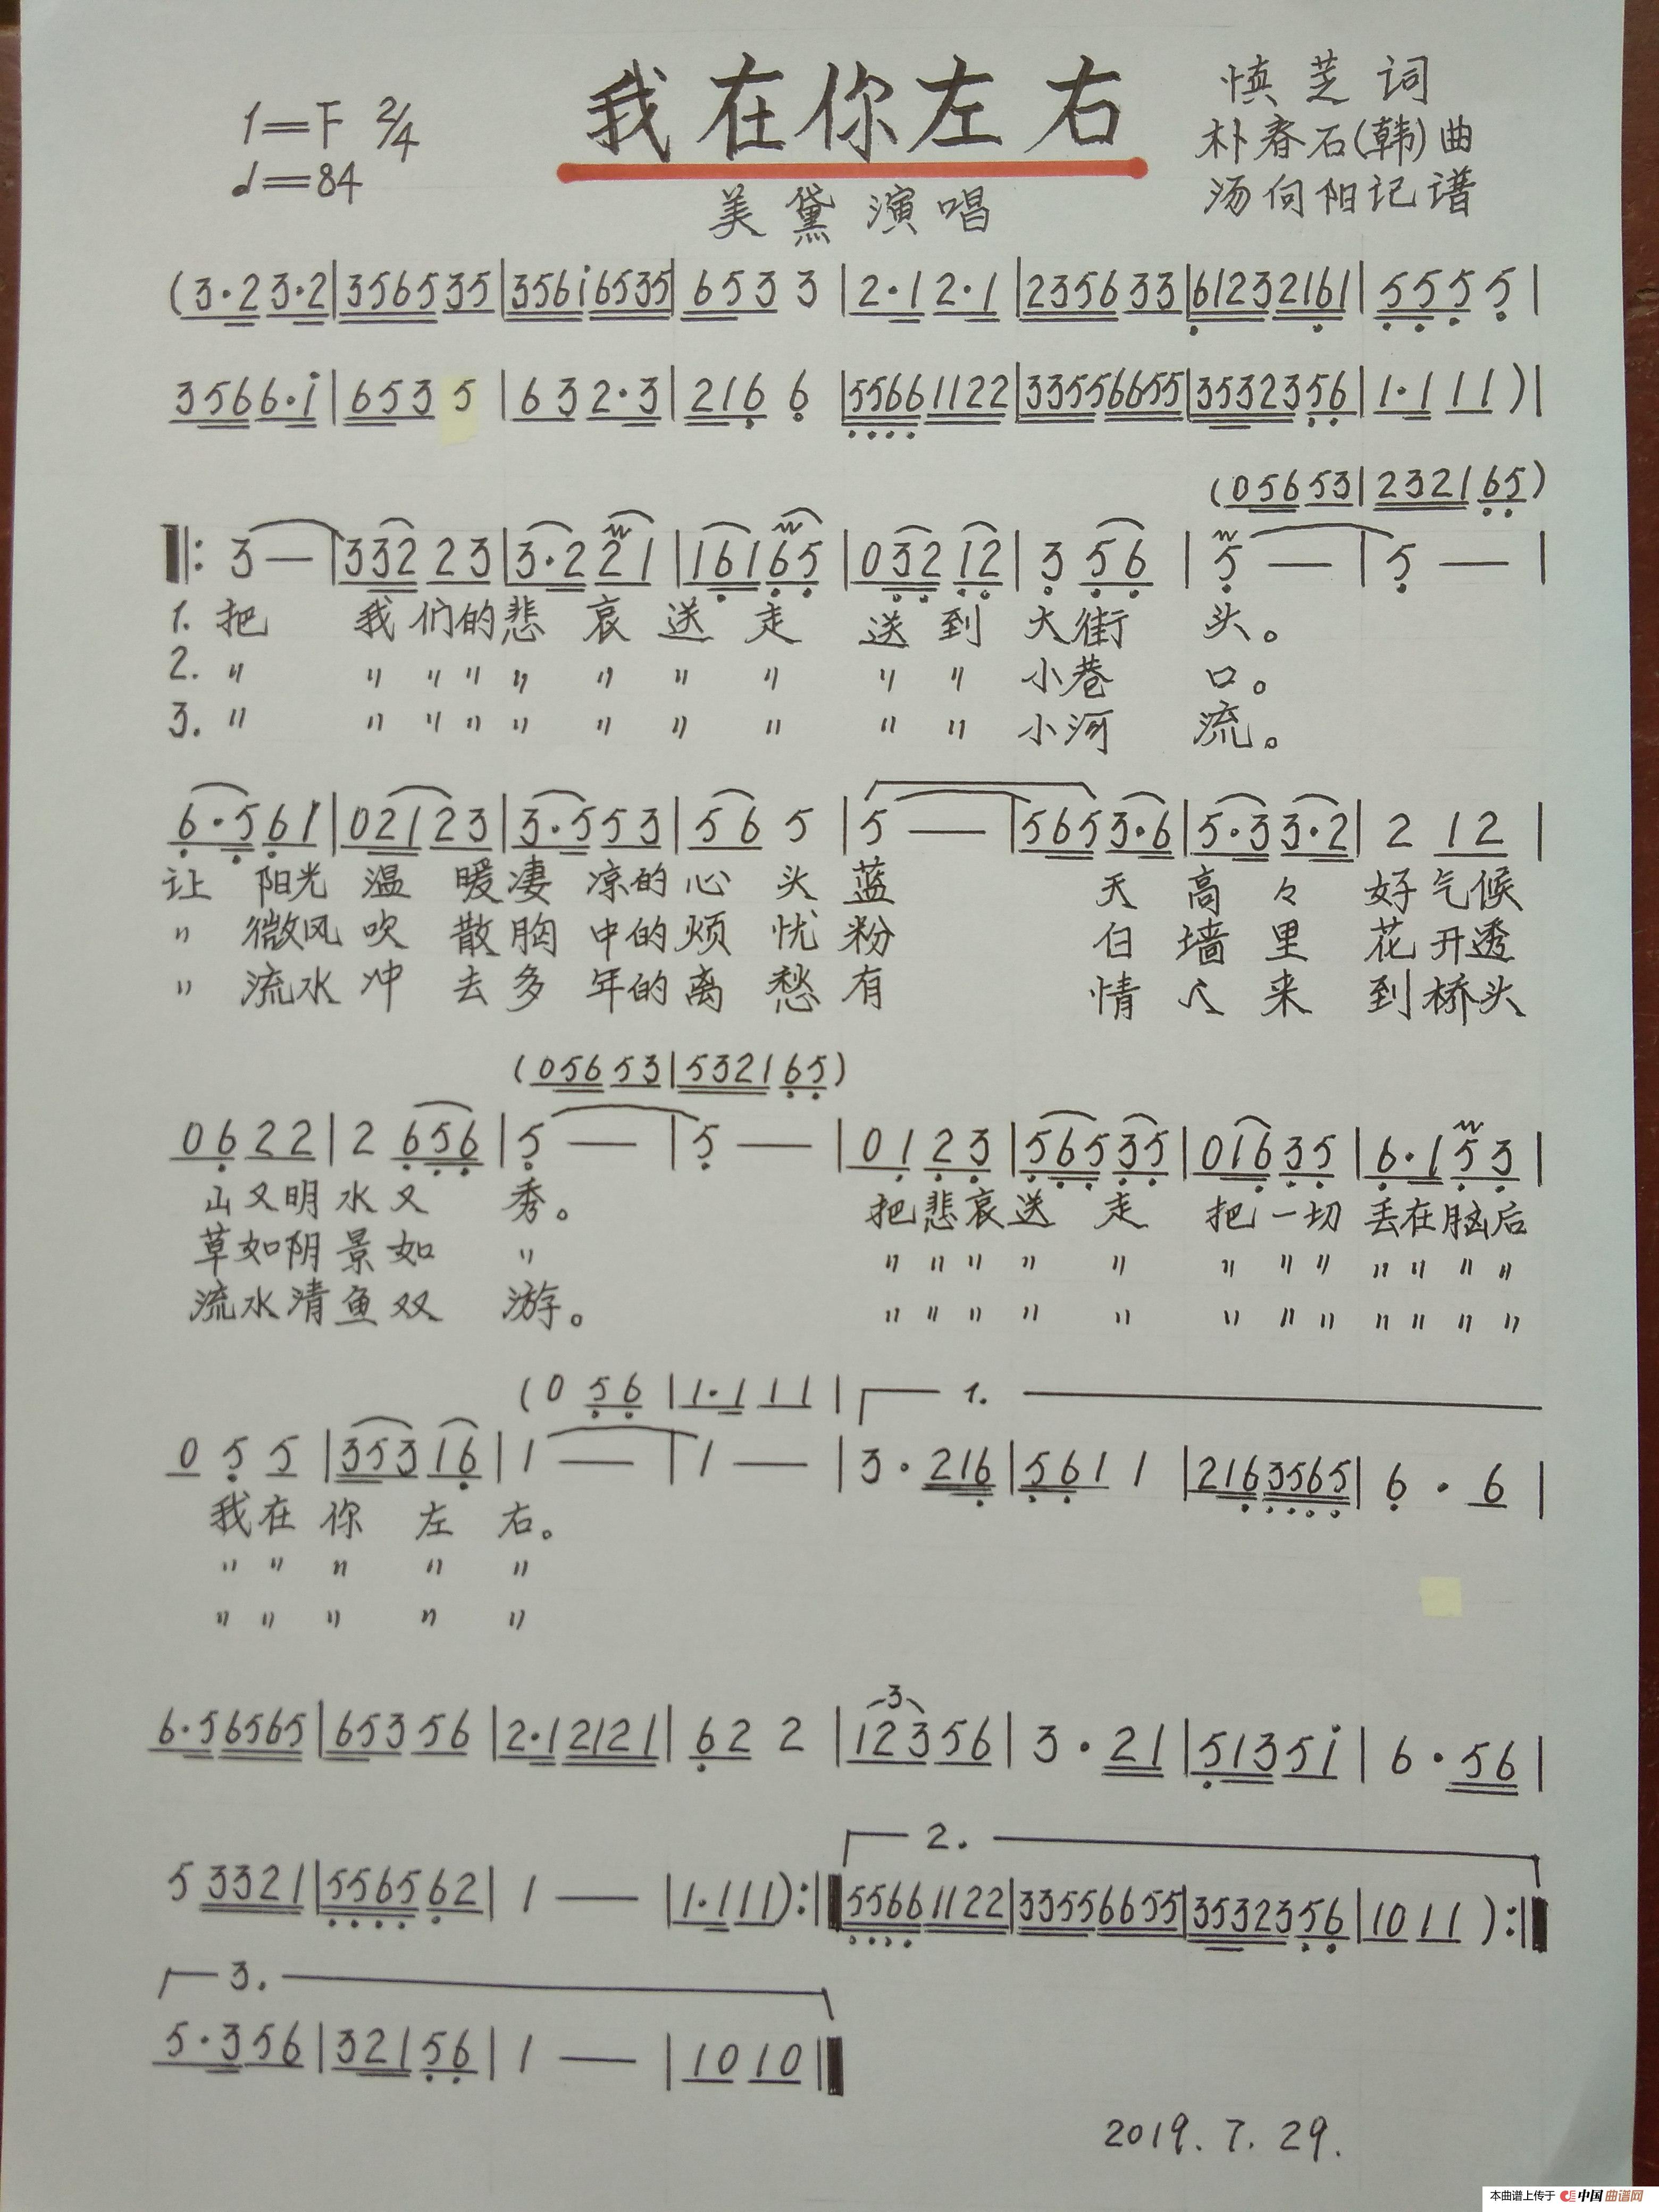 我在你左右
1=F 2/4
♩=84
慎芝词
朴春石(韩)曲
汤伺阳记谱
美黛演唱
(3·2 3·2|3565 35|356i 6535|653 3|2·1 2·1|2356 33|6123 2161|555 5|
3566·i|653 5|63 2·3|216 6|5566 1122|3355 6655|3532356|1·1 11)|
(056 53|2321 65)
‖:3—|332 23|3·2 21|161 65|032 12|3 56|5—|5—|
1.把 我们的悲哀送走 送到大街 头。
2.〃 〃〃〃〃〃〃〃 〃〃小巷 口。
3.〃 〃〃〃〃〃〃〃 〃〃小河 流。
6·5 61|021 23|3·5 53|56 5|5—|565 3·6|5·3 3·2|2 12|
让 阳光温 暖凄 凉的心 头 蓝 天 高 々 好气候
〃 微风吹 散胸 中的烦 忧 粉 白 墙 里 花开透
〃 流水冲 去多 年的离 愁 有 情 人 来 到桥头
(056 53|5321 65)
06 22|2 656|5—|5—|01 23|565 35|016 35|6·1 53|
山又明水又 秀。 把悲哀送 走 把一切丢在脑后
草如阴景如 〃 〃〃〃〃 〃 〃〃〃〃〃〃〃
流水清鱼双 游。 〃〃〃〃 〃 〃〃〃〃〃〃〃
(0 56|1·1 11| 1.
0 5 5|353 16|1—|1—|3·216|561 1|216 3565|6·6|
我在你 左 右。
〃〃〃 〃 〃
〃〃〃 〃 〃
6·5 6565|653 56|2·1 2121|62 2|3
123 56|3·21|513 5i|6·56|
2.
5 3321|5565 62|1—|1·1 11):‖5566 1122|3355 6655|3532356|10 11):‖
3.
5·3 56|321 56|1—|10 10‖
2019.7.29.
本曲谱上传于 中国曲谱网